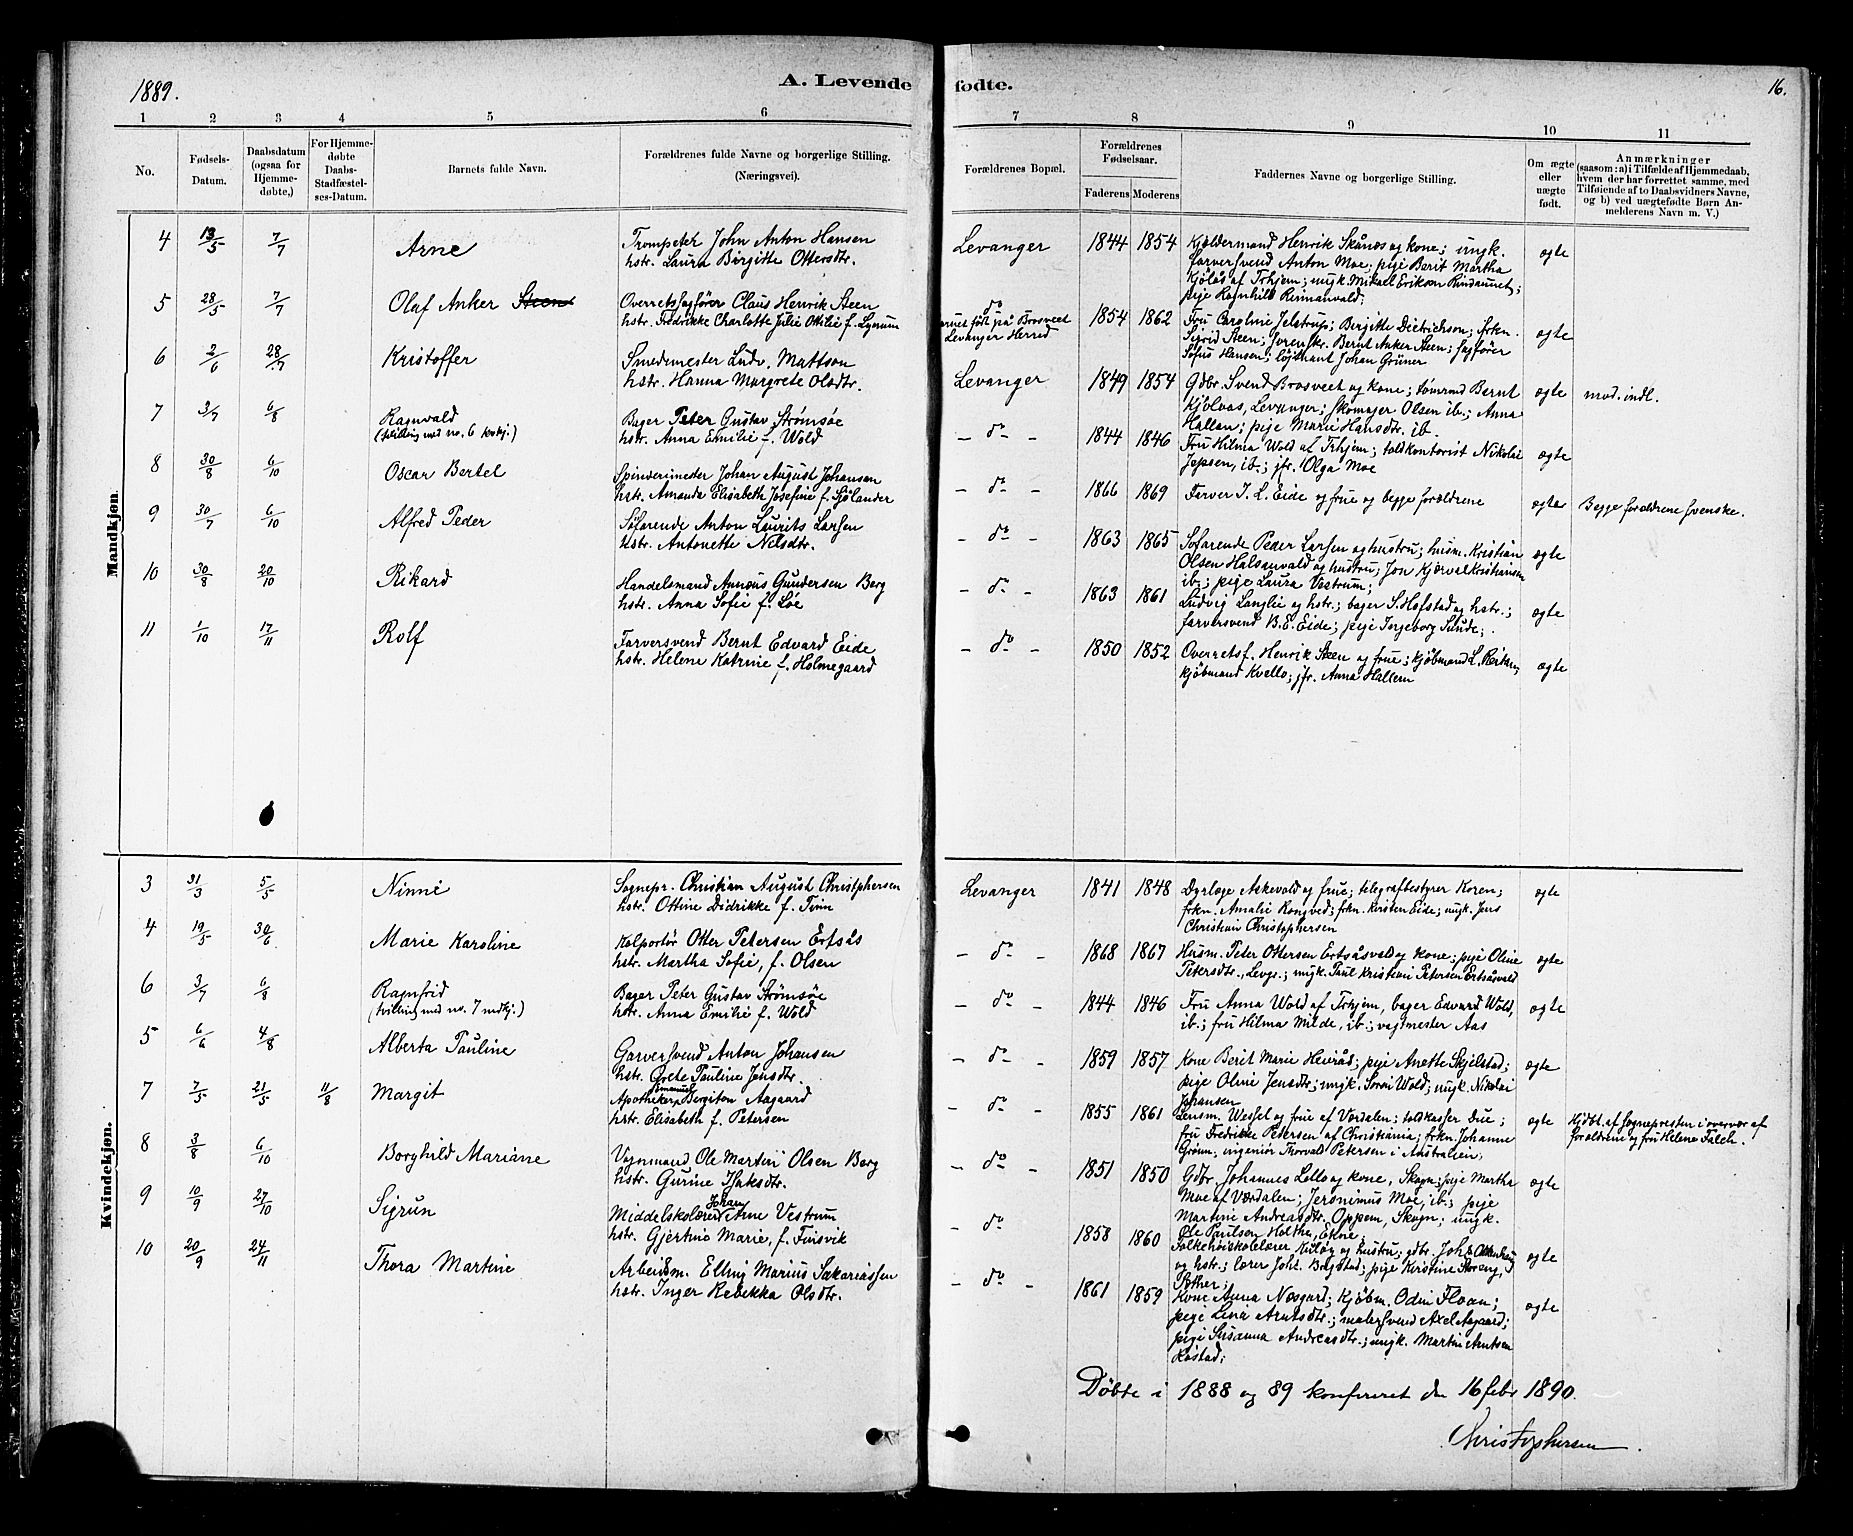 1889.
A. Levende
fødte.
16.
1 2 3 4 5 6
7 8 9 10 11
No.
Fødsels-
Datum.
Daabsdatum
(ogsaa for
Hjemme-
døbte,)
For Hjemme-
døbte
Daabs-
Stadfæstel-
ses-Datum.
Barnets fulde Navn.
Forældrenes fulde Navne og borgerlige Stilling.
(Næringsvei).
Forældrenes Bopæl.
Forældrenes
Fødselsaar.
Faderens Moderens
Faddernes Navne og borgerlige Stilling.
Om ægte
eller
uægte
født.
Anmærkninger
(saasom: a) i Tilfælde af Hjemmedaab,
hvem der har forrettet samme, med
Tilføiende af to Daabsvidners Navne,
og b) ved uægtefødte Børn An-
melderens Navn m. V.)
Mandkjøn.
4 13/5 7/7 Arne
Trompeter John Anton Hansen
hstr. Laura Birgitte Ottersdtr.
Levanger 1844 1854
Kjældermand Henrik Skånes og kone; ungk.
farversvend Anton Moe; pige Berit Martha
Kjølås af Trhjem; ungk. Mikael Erikson Rindsunnet;
pige Ragnhild Rinnanvald;
ægte
5 28/5 7/7 Olaf Anker Steen
Overretssagfører Claus Henrik Steen
hstr. Fredrikke Charlotte Julie Ottilie f. Lynum
do
født på Brosveet
Levanger Herred
1854 1862
Fru Caroline Jelstrup; Birgitte Dietrichson; frkn.
Sigrid Steen; Bernt Anker Steen; sagfører
Sofus Hansen; løjtnant Johan Grüner
ægte
6 2/6 28/7 Kristoffer
Smedemester Ludv. Mattson
hstr. Hanna Margrete Olsdtr.
Levanger 1849 1854
Gdbr. Svend Brosveet og kone; tømrmd Bernt
Kjølvas, Levanger; skomager Olsen ib.; Anna
Hallan; pige Marie Hansdtr. ib.
ægte mod. indl.
7 3/7 6/8 Ragnvald
(tvilling med no. 6 kvkj.)
Bager Peter Gustav Strømsøe
hstr. Anna Emilie f. Wold
- do - 1844 1846
Fru Hilma Wold af Trhjem; toldkontorist Nikolai
Jepsen, ib.; jfr. Olga Moe
ægte
8 30/8 6/10 Oscar Bertel
Spinderimester Johan August Johansen
hstr. Amanda Elisabeth Josefine f. Sjölander
- do - 1866 1869
Farver I. L. Eide og frue og begge forældrene
ægte Begge forældrene svenske.
9 30/7 6/10 Alfred Peder
Søfarende Anton Laurits Larsen
hstr. Antonette Nilsdtr.
- do - 1863 1865
Søfarende Peder Larsen og hustru; husm. Kristian
Olsen Halsanvald og hustru; Jon Kristiansen
ib.; pige Laura Vestrum;
ægte
10 30/8 20/10 Rikard
Handelsmand Annæus Gundersen Berg
hstr. Anna Sofie f. Løe
- do - 1863 1861
Ludvig Langlie og hstr.; bager S. Hofstad og hstr.;
farversvend B. E. Eide; pige Ingeborg Sunde;
ægte
11 1/10 17/11 Rolf
Farversvend Bernt Edvard Eide
hstr. Helene Katrine f. Holmegaard
- do - 1850 1852
Overretsf. Henrik Steen og frue; kjøbmand L.
kjøbmand Kvello; jfr. Anna Hallem
ægte
Kvindekjøn.
3 31/3 5/5 Ninni
Sognepr. Christian August Christphersen
hstr. Ottine Didrikke f. Tvin
Levanger 1841 1848
Dyrlæge Askevold og frue; telegrafbestyrer Koren;
frkn. Amalie Rongved; frkn. Kirsten Eide; ungk. Jens
Christian Christophersen
ægte
4 19/5 30/6 Marie Karoline
Kolportør Otter Petersen Ertsås
hstr. Martha Sofie, f. Olsen
- do - 1868 1867
Husm. Peter Ottersen Ertsåsvald og kone; pige Oline
Petersdtr., Levgr.; ungk. Paul Kristian Petersen Ertsåsvald
ægte
6 3/7 6/8 Ragnfrid
(tvilling med no. 7 mdkj.)
Bager Peter Gustav Strømsøe
hstr. Anna Emilie f. Wold
- do - 1844 1846
Fru Anna Wold af Trhjem, bager Edvard Wold,
ib.; fru Hilma Milde, ib.; vagtmester Aas
ægte
5 6/6 4/8 Alberta Pauline
Garversvend Anton Johansen
hstr. Grete Pauline Jensdtr.
- do - 1859 1857
Kone Berit Marie Heirås; pige Anette Skjelstad;
pige Oline Jensdtr; ungk. Søren Wold; ungk. Nikolai
Johansen
ægte
7 7/5 21/5 11/8 Margit
Apotheker Emanuel Bergiton Aagaard
hstr. Elisabeth f. Petersen
- do - 1855 1861
Lensm. Wessel og frue af Værdalen; toldkasser Due;
fru Fredrikke Petersen af Christiania; frkn. Johanne
Grønn; ingeniør Thorvald Petersen i Australien;
ægte Hjdbt. af sognepresten i overvær af
forældrene og fru Helene Falch.
8 3/8 6/10 Borghild Mariane
Vognmand Ole Martin Olsen Berg
hstr. Gurine Isaksdtr.
- do - 1851 1850
Gdbr. Johannes Lello og kone, Skogn; pige Martha
Moe af Værdalen; Jeronimus Moe, ib.; pige
Martine Andreasdtr. Oppem, Skogn; ungk.
Ole Paulsen Holthe, Ekne;
ægte
9 10/9 27/10 Sigrun
Middelskolelærer Johan Arne Vestrum
hstr. Gjertine Marie, f. Finsvik
- do 1858 1860
Folkehøiskolelærer og hustru; gdbr. Joh.
og hstr.; lærer Joht. Bragstad; pige Kirstine
ægte
10 20/9 24/11 Thora Martine
Arbeidsm. Elling Marius Sakariassen
hstr. Inger Rebekka Olsdtr.
- do - 1861 1859
Kone Anna Næsgard; kjøbm. Odin Floan;
pige Lina Arntsdtr.; malersvend Axel Aagaard;
pige Susanna Andreasdtr.; ungk. Martin Arntsen
Røstad;
ægte
Døbte i 1888 og 89 konfereret den 16 febr 1890.
Christophersen